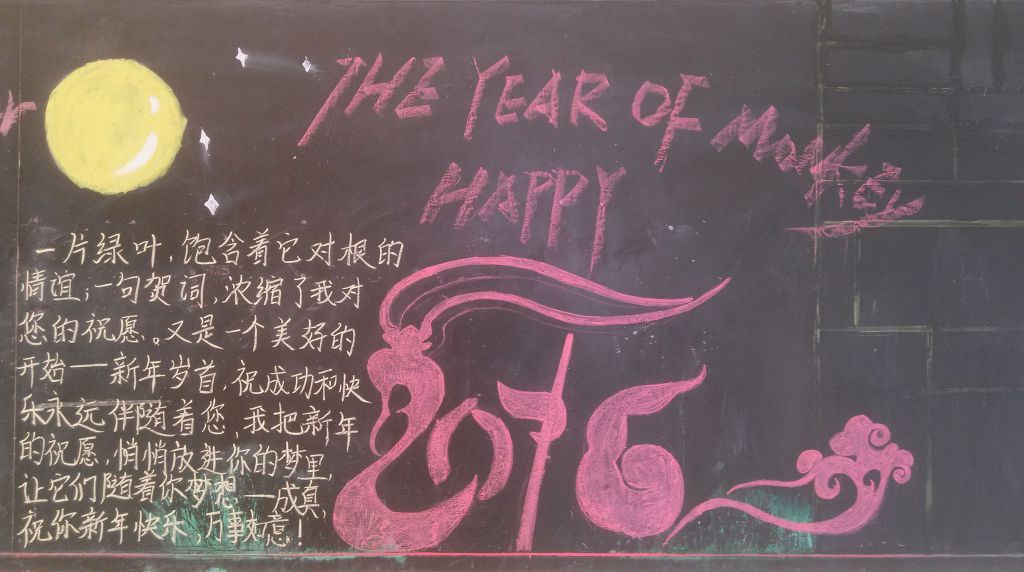 THE YEAR OF MONKEY
HAPPY
一片绿叶，饱含着它对根的
情谊；一句贺词，浓缩了我对
您的祝愿。又是一个美好的
开始——新年岁首，祝成功和快
乐永远伴随着您，我把新年
的祝愿，悄悄放进你的梦里，
让它们随着你梦想——成真，
祝你新年快乐，万事如意！
2016